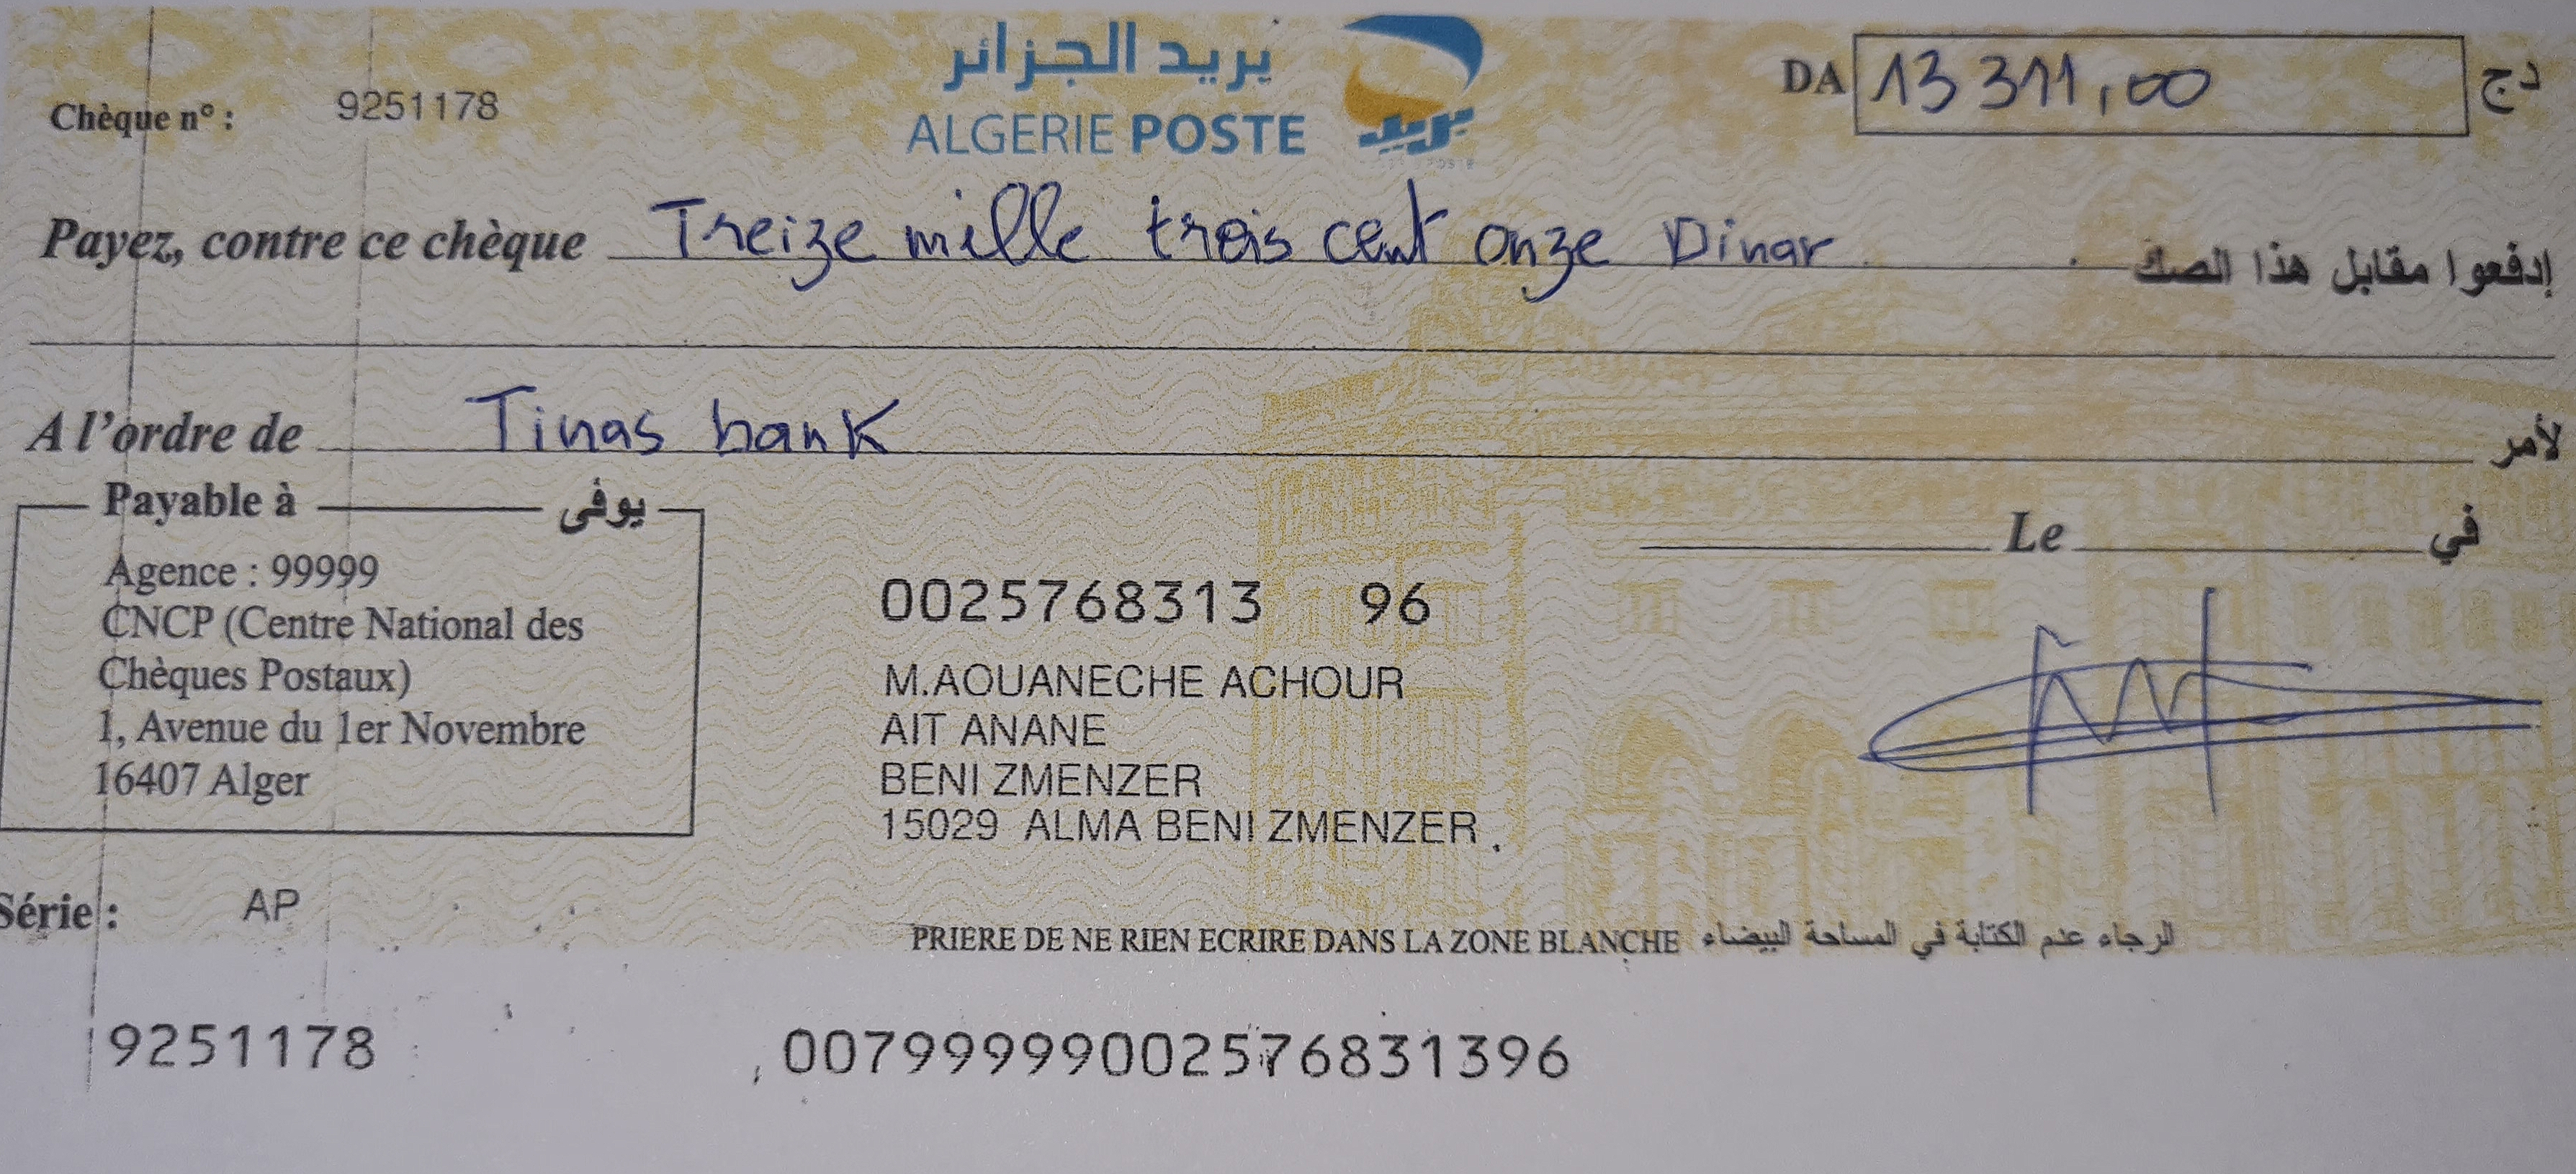 بريد الجزائر
ALGERIE POSTE
بريد
Chèque n° : 9251178
DA 13 311,00 دج
Payez, contre ce chèque Treize mille trois cent onze Dinar إدفعوا مقابل هذا الصك
A l'ordre de Tinas bank لأمر
Payable à يوفى
Agence : 99999
CNCP (Centre National des
Chèques Postaux)
1, Avenue du 1er Novembre
16407 Alger
Le في
0025768313 96
M.AOUANECHE ACHOUR
AIT ANANE
BENI ZMENZER
15029 ALMA BENI ZMENZER
Série : AP
PRIERE DE NE RIEN ECRIRE DANS LA ZONE BLANCHE الرجاء عدم الكتابة في المساحة البيضاء
9251178 00799999002576831396